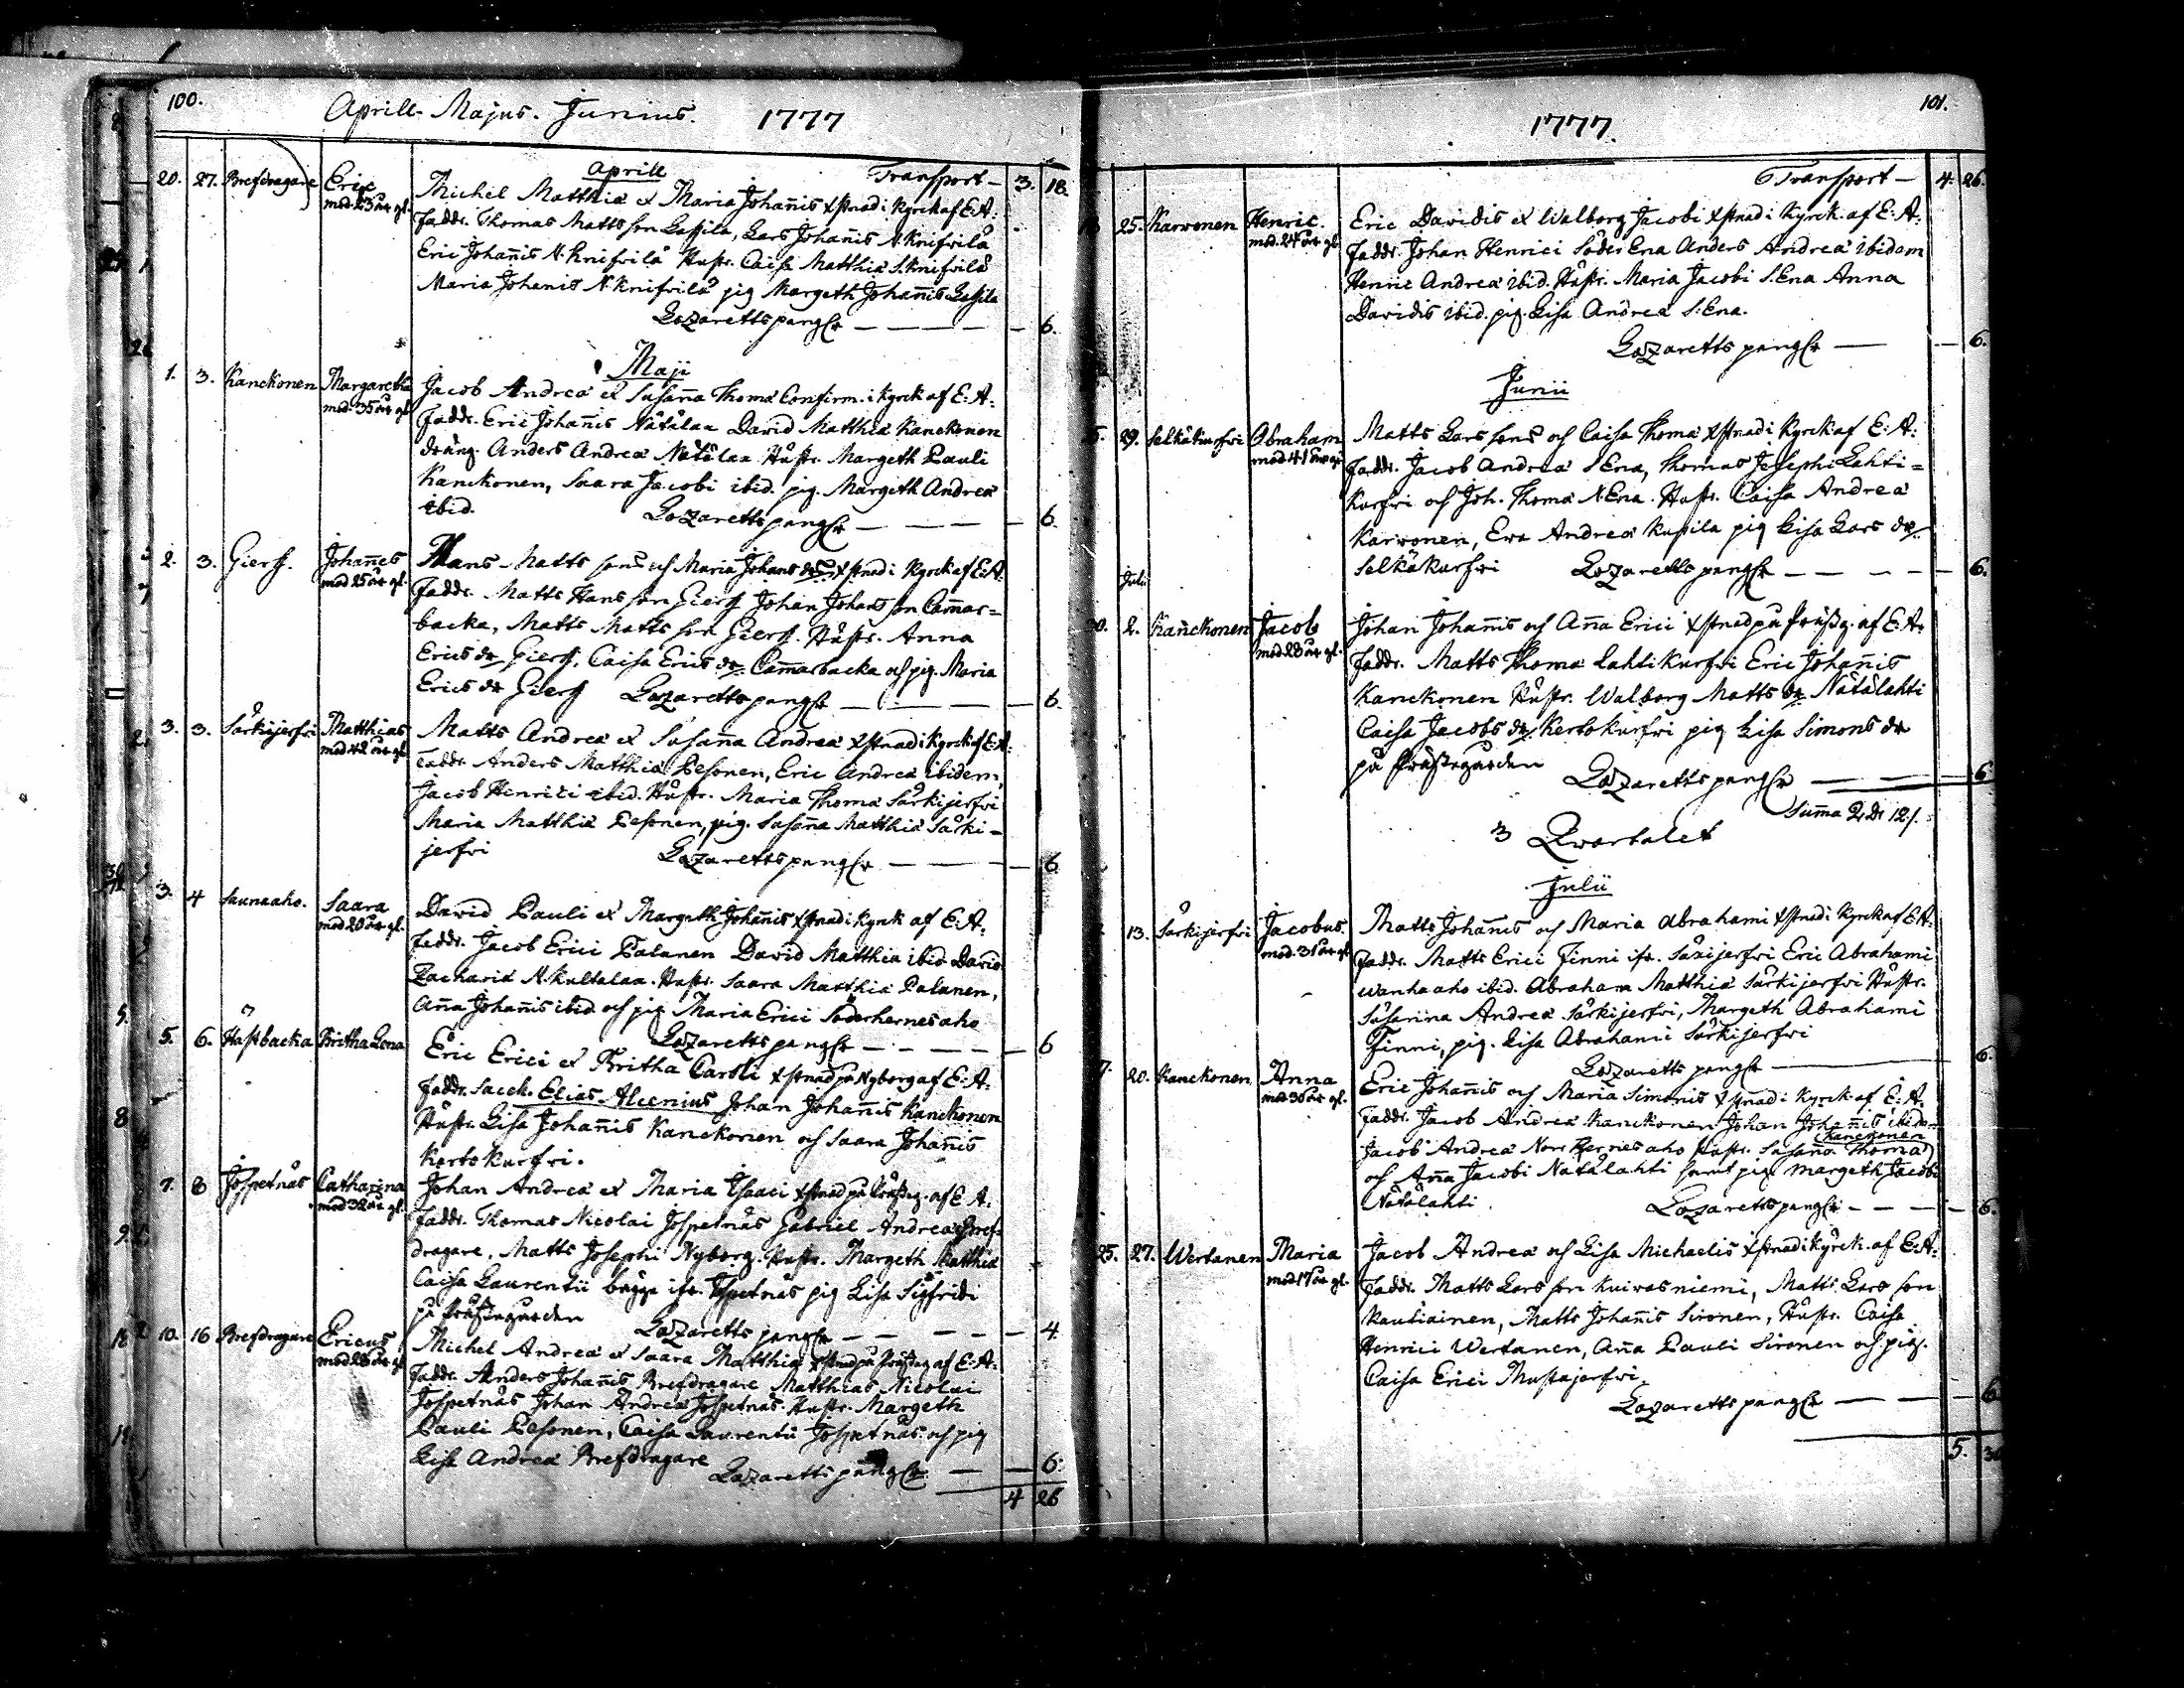 100.
Aprill- Majus. Junius. 1777
Aprill Transport - 3. 18.
20. 27. Brefdragare Eric Michel Matthiæ et Maria Johañis xstnad i Kyrck af E: A:
mod. 23 år gl. Faddr. Thomas Matts son Lassila, Lars Johañis N. Knifvilä
Eric Johañis N. Knifvilä Hustr. Caisa Matthiæ S. Knifvilä
Maria Johanis N. Knifvilä pig Margeth Johañis Lassila
Lazaretts pengr — — — — 6.
Maji
1. 3. Kanckonen Margaretha Jacob Andreæ et Susaña Thomæ Confirm. i Kyrck af E: A:
mod. 35 år gl. Faddr. Eric Johañis Nätälaa David Matthiæ Kanckonen
dräng. Anders Andreæ Nätälaa Hustr. Margeth Pauli
Kanckonen, Saara Jacobi ibid. pig. Margeth Andreæ
ibid. Lazaretts pengr — — — 6.
2. 3. Giers. Johañes Hans Matts son och Maria Johans dr xstnad i Kyrck af E: A:
mod 25 år gl. Faddr. Matts Hans son Giers Johan Johans son Cam̃ar=
backa, Matts Matts son Giers. Hustr. Anna
Erics dr Giers, Caisa Erics dr Cam̃arbacka och pig. Maria
Erics dr Giers Lazaretts pengr — — — 6.
3. 3. Särkijerfvi Matthias Matts Andreæ et Susaña Andreæ xstnad i Kyrck af E: A:
mod 42 år gl. Faddr. Anders Matthiæ Pesonen, Eric Andreæ ibidem,
Jacob Henrici ibid. Hustr. Maria Thomæ Särkijerfvi
Maria Matthiæ Pesonen, pig. Susaña Matthiæ Särki-
jerfvi Lazaretts pengr — — — 6
3. 4 Saunaaho. Saara David Pauli et Margeth Johañis xstnad i Kyrck af E: A:
mod 20 år gl. Faddr. Jacob Erici Palanen David Matthiæ ibid David
Zachariæ N. Kultalaa. Hustr. Saara Matthiæ Palanen,
Aña Johañis ibid. och pig Maria Erici Söderhernesaho
Lazaretts pengr — — — — 6
5. 6. Hästbacka Britha Lena Eric Erici et Britha Caroli xstnad på Nyborg af E: A:
Faddr. Sacell. Elias Alcenius Johan Johañis Kanckonen
Hustr. Lisa Johañis Kanckonen och Saara Johañis
Kertokurfvi.
7. 8 Jospetnäs Catharina Johan Andreæ et Maria Isaaci xstnad på Prästeg. af E: A:
mod 32 år gl. Faddr. Thomas Nicolai Jospetnäs Gabriel Andreæ Bref-
dragare, Matts Josephi Nyborg. Hustr. Margeth Matthiæ
Caisa Laurentii bägge ifr. Jospetnäs pig Lisa Sigfridi
på Prästegården Lazaretts pengr — — — 4
10. 16 Brefdragare Ericus Michel Andreæ et Saara Matthiæ xstnad på Prästeg af E: A:
mod 28 år gl Faddr. Anders Johañis Brefdragare Matthias Nicolai
Jospetnäs Johan Andreæ Jospetnäs. Hustr. Margeth
Pauli Pesonen, Caisa Laurentii Jospetnäs och pig
Lisa Andreæ Brefdragare
Lazaretts pengr — — 6.
4 26
1777
101.
Transport — 4. 26.
25. Karvonen Henric. Eric Davidis et Walborg Jacobi xstnad i Kyrck. af E: A:
mod. 24 år gl Faddr. Johan Henrici Söder Ena Anders Andreæ ibidem
Henric Andreæ ibid. Hustr. Maria Jacobi S. Ena Anna
Davidis ibid. pig. Lisa Andreæ S: Ena.
Lazaretts pengr — — 6.
Junii
29. Selkäkurfvi Abraham Matts Lars sons och Caisa Thomæ xstnad i Kyrck af E: A:
mod 41 år gl Faddr. Jacob Andreæ S Ena, Thomas Josephi Lahti=
kurfvi och Joh. Thomæ N. Ena. Hustr. Caisa Andreæ
Karvonen, Eva Andreæ Kussila pig Lisa Lars dr
Selkäkurfvi Lazaretts pengr — — — 6.
Julii
30. 2. Kañckonen Jacob Johan Johañis och Aña Erici xstnad på Prästeg. af E: A:
mod 28 år gl. Faddr. Matts Thomæ Lahtikurfvi Eric Johañis
Kanckonen Hustr. Walborg Matts dr Nätälahti
Caisa Jacobs dr Kertokurfvi pig Lisa Simons dr
på Prästegården Lazaretts pengr — — 6
Sum̃a 2 dr 12 /.
3 Qvartalet
Julii
13. Särkijerfvi Jacobus. Matts Johañis och Maria Abrahami xstnad i Kyrck af E: A:
mod. 31 år gl Faddr. Matts Erici Finni ifr. Säxijerfvi Eric Abrahami
Wanhaaho ibid. Abraham Matthiæ Särkijerfvi Hustr.
Susanna Andreæ Särkijerfvi, Margeth Abrahami
Finni, pig. Lisa Abrahami Särkijerfvi
Lazaretts pengr — 6.
20. Kanckonen Anna Eric Johañis och Maria Simonis xstnad i Kyrck. af E: A:
mod 30 år gl. Faddr. Jacob Andreæ Kanckonen Johan Johañis ibidem
Jacob Andreæ Norr Hernesaho Hustr. Susaña Thomæ Kanckonen
och Aña Jacobi Nätälahti samt pig. Margeth Jacobi
Nätälahti Lazaretts pengr — — — 6.
25. 27. Wertanen Maria Jacob Andreæ och Lisa Michaelis xstnad i Kyrck. af E: A:
mod 17 år gl. Faddr. Matts Lars son Kuivasniemi, Matts Lars son
Kautiainen, Matts Johañis Sironen, Hustr. Caisa
Henrici Wertanen, Aña Pauli Sironen och pig.
Caisa Erici Mustajerfvi.
Lazaretts pengr — — 6
5.